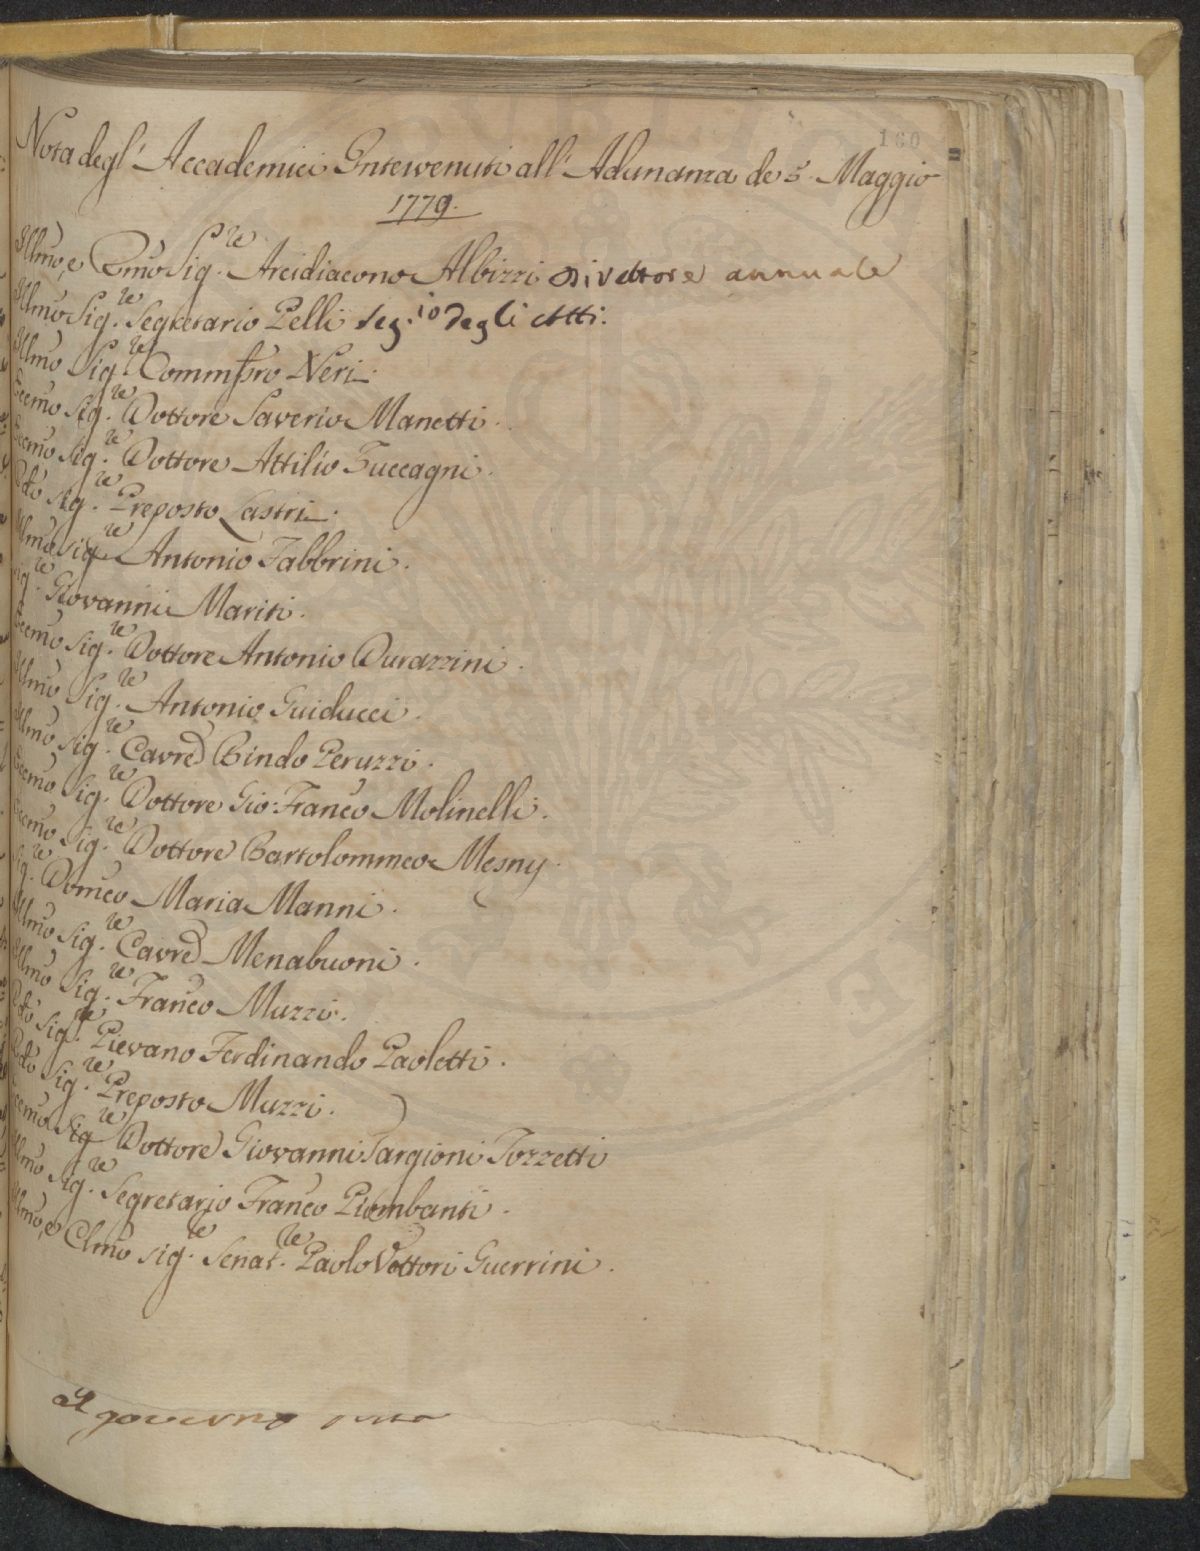 160
Nota degl' Accademici Intervenuti all' Adunanza de 5. Maggio
1779.
Illmo, e Rmo Sig.re Arcidiacono Albizzi Direttore annuale
Illmo Sig.re Segretario Pelli Seg.io degli Atti.
Illmo Sig.re Commssro Neri.
Eccmo Sig.re Dottore Saverio Manetti.
Eccmo Sig.re Dottore Attilio Zuccagni.
Rdo Sig.re Preposto Lastri.
Illmo Sig.re Antonio Fabbrini.
Sig.re Giovanni Mariti.
Eccmo Sig.re Dottore Antonio Durazzini.
Illmo Sig.re Antonio Guiducci.
Illmo Sig.re Cavre Bindo Peruzzi.
Eccmo Sig.re Dottore Gio: Franco Molinelli.
Eccmo Sig.re Dottore Bartolommeo Mesny.
Sig.re Domco Maria Manni.
Illmo Sig.re Cavre Menabuoni.
Illmo Sig.re Franco Muzzi.
Rdo Sig.re Pievano Ferdinando Paoletti.
Rdo Sig.re Preposto Muzzi.
Eccmo Sig.re Dottore Giovanni Targioni Tozzetti
Illmo Sig.re Segretario Franco Piombanti.
Illmo, e Clmo Sig.re Senat.re Paolo Vettori Guerrini.
Il governo